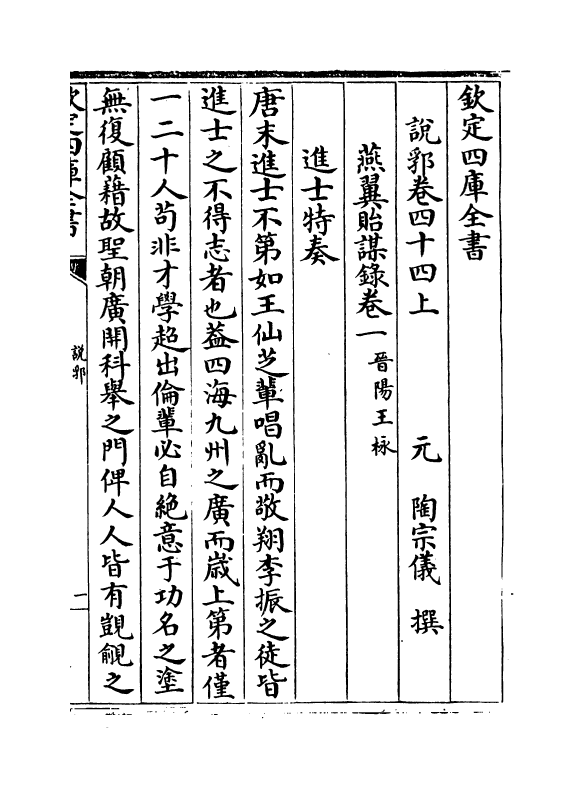 欽定四庫全書
說郛卷四十四上　元　陶宗儀　撰
燕翼貽謀錄卷一　晉陽王栐
進士特奏
唐末進士不第如王仙芝輩唱亂而敬翔李振之徒皆
進士之不得志者也葢四海九州之廣而嵗上第者僅
一二十人苟非才學超出倫輩必自絶意于功名之塗
無復顧藉故聖朝廣開科舉之門俾人人皆有覬覦之
欽定四庫全書
說郛
二